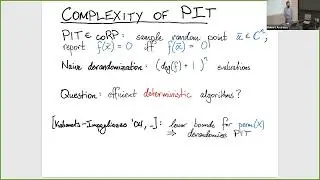 COMPLEXITY OF PIT
PIT ∈ coRP: sample random point x̄ ∈ ℂⁿ,
report f(x̄) = 0 iff f(x̄) = 0!
Naive derandomization: (deg(f) + 1)ⁿ evaluations
Question: efficient deterministic algorithms?
[Kabanets-Impagliazzo '04, …]: lower bounds for perm(X)
⇒ derandomize PIT